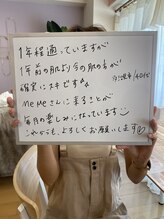 1年程通っていますが
1年前の肌より今の肌の方が
確実にスキです♡
MeMeさんに来ることが
毎月の楽しみになっています☺
これからも、よろしくお願いします♡